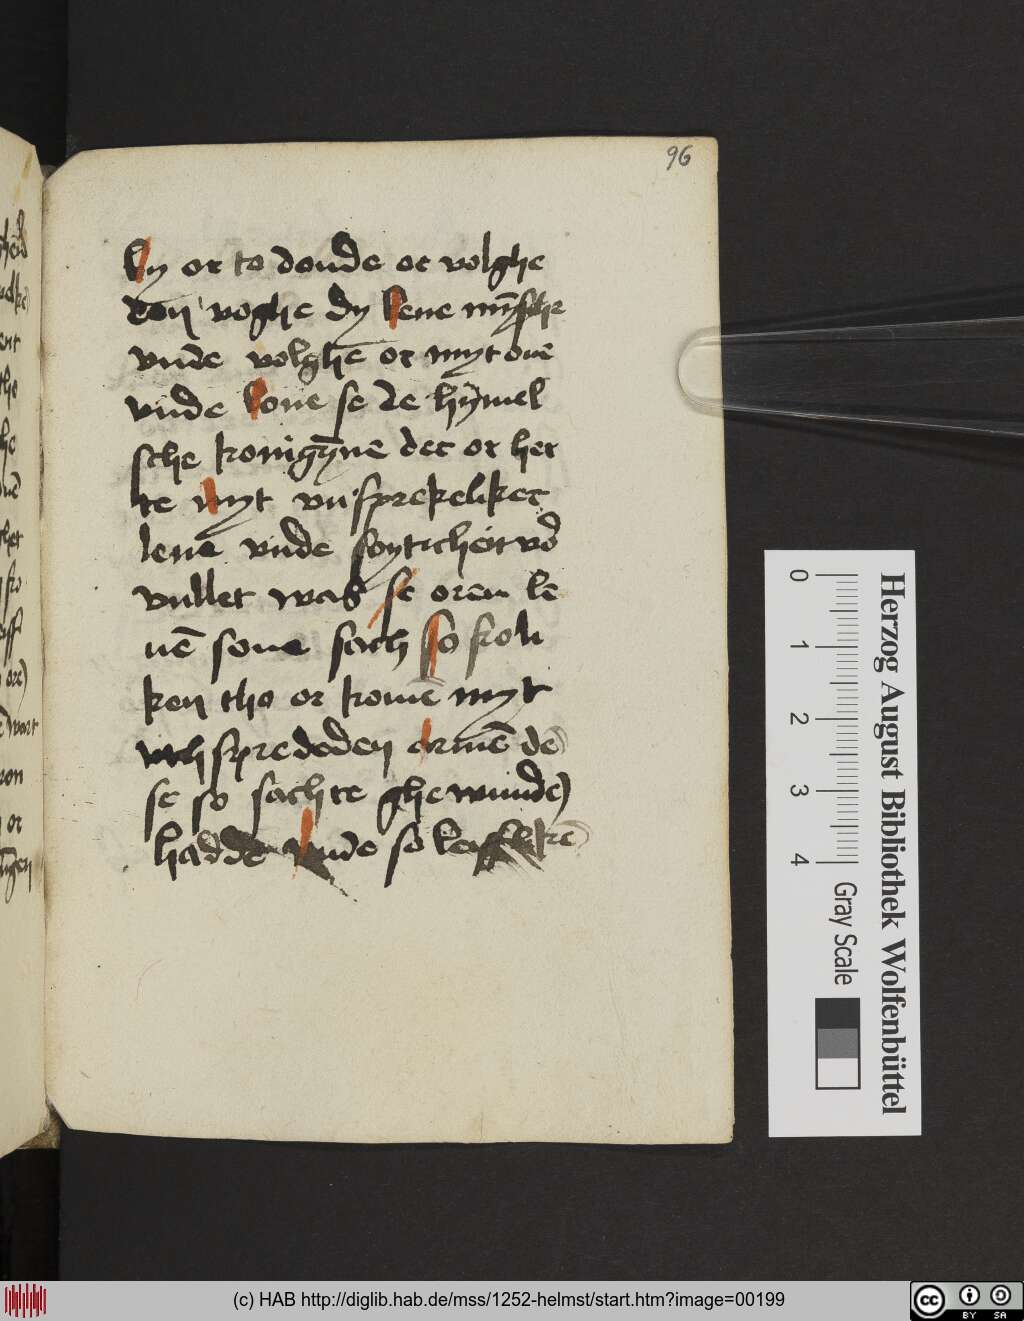 96
by or to donde or volghe
den voghe dy lene mȳsche
vnde volghē or myt ouē
vnde loue se de hȳmel
sche konigȳne det or her
te myt vnsprekeliker
leue vnde soyticheit vō
vullet was se oren lē
uē sone sach so froli
ken tho or komē myt
vth spredden armē de
se so sachte ghewunden
hadde vnde so
Herzog August Bibliothek Wolfenbüttel
0 1 2 3 4
Gray Scale
(c) HAB http://diglib.hab.de/mss/1252-helmst/start.htm?image=00199
cc BY SA